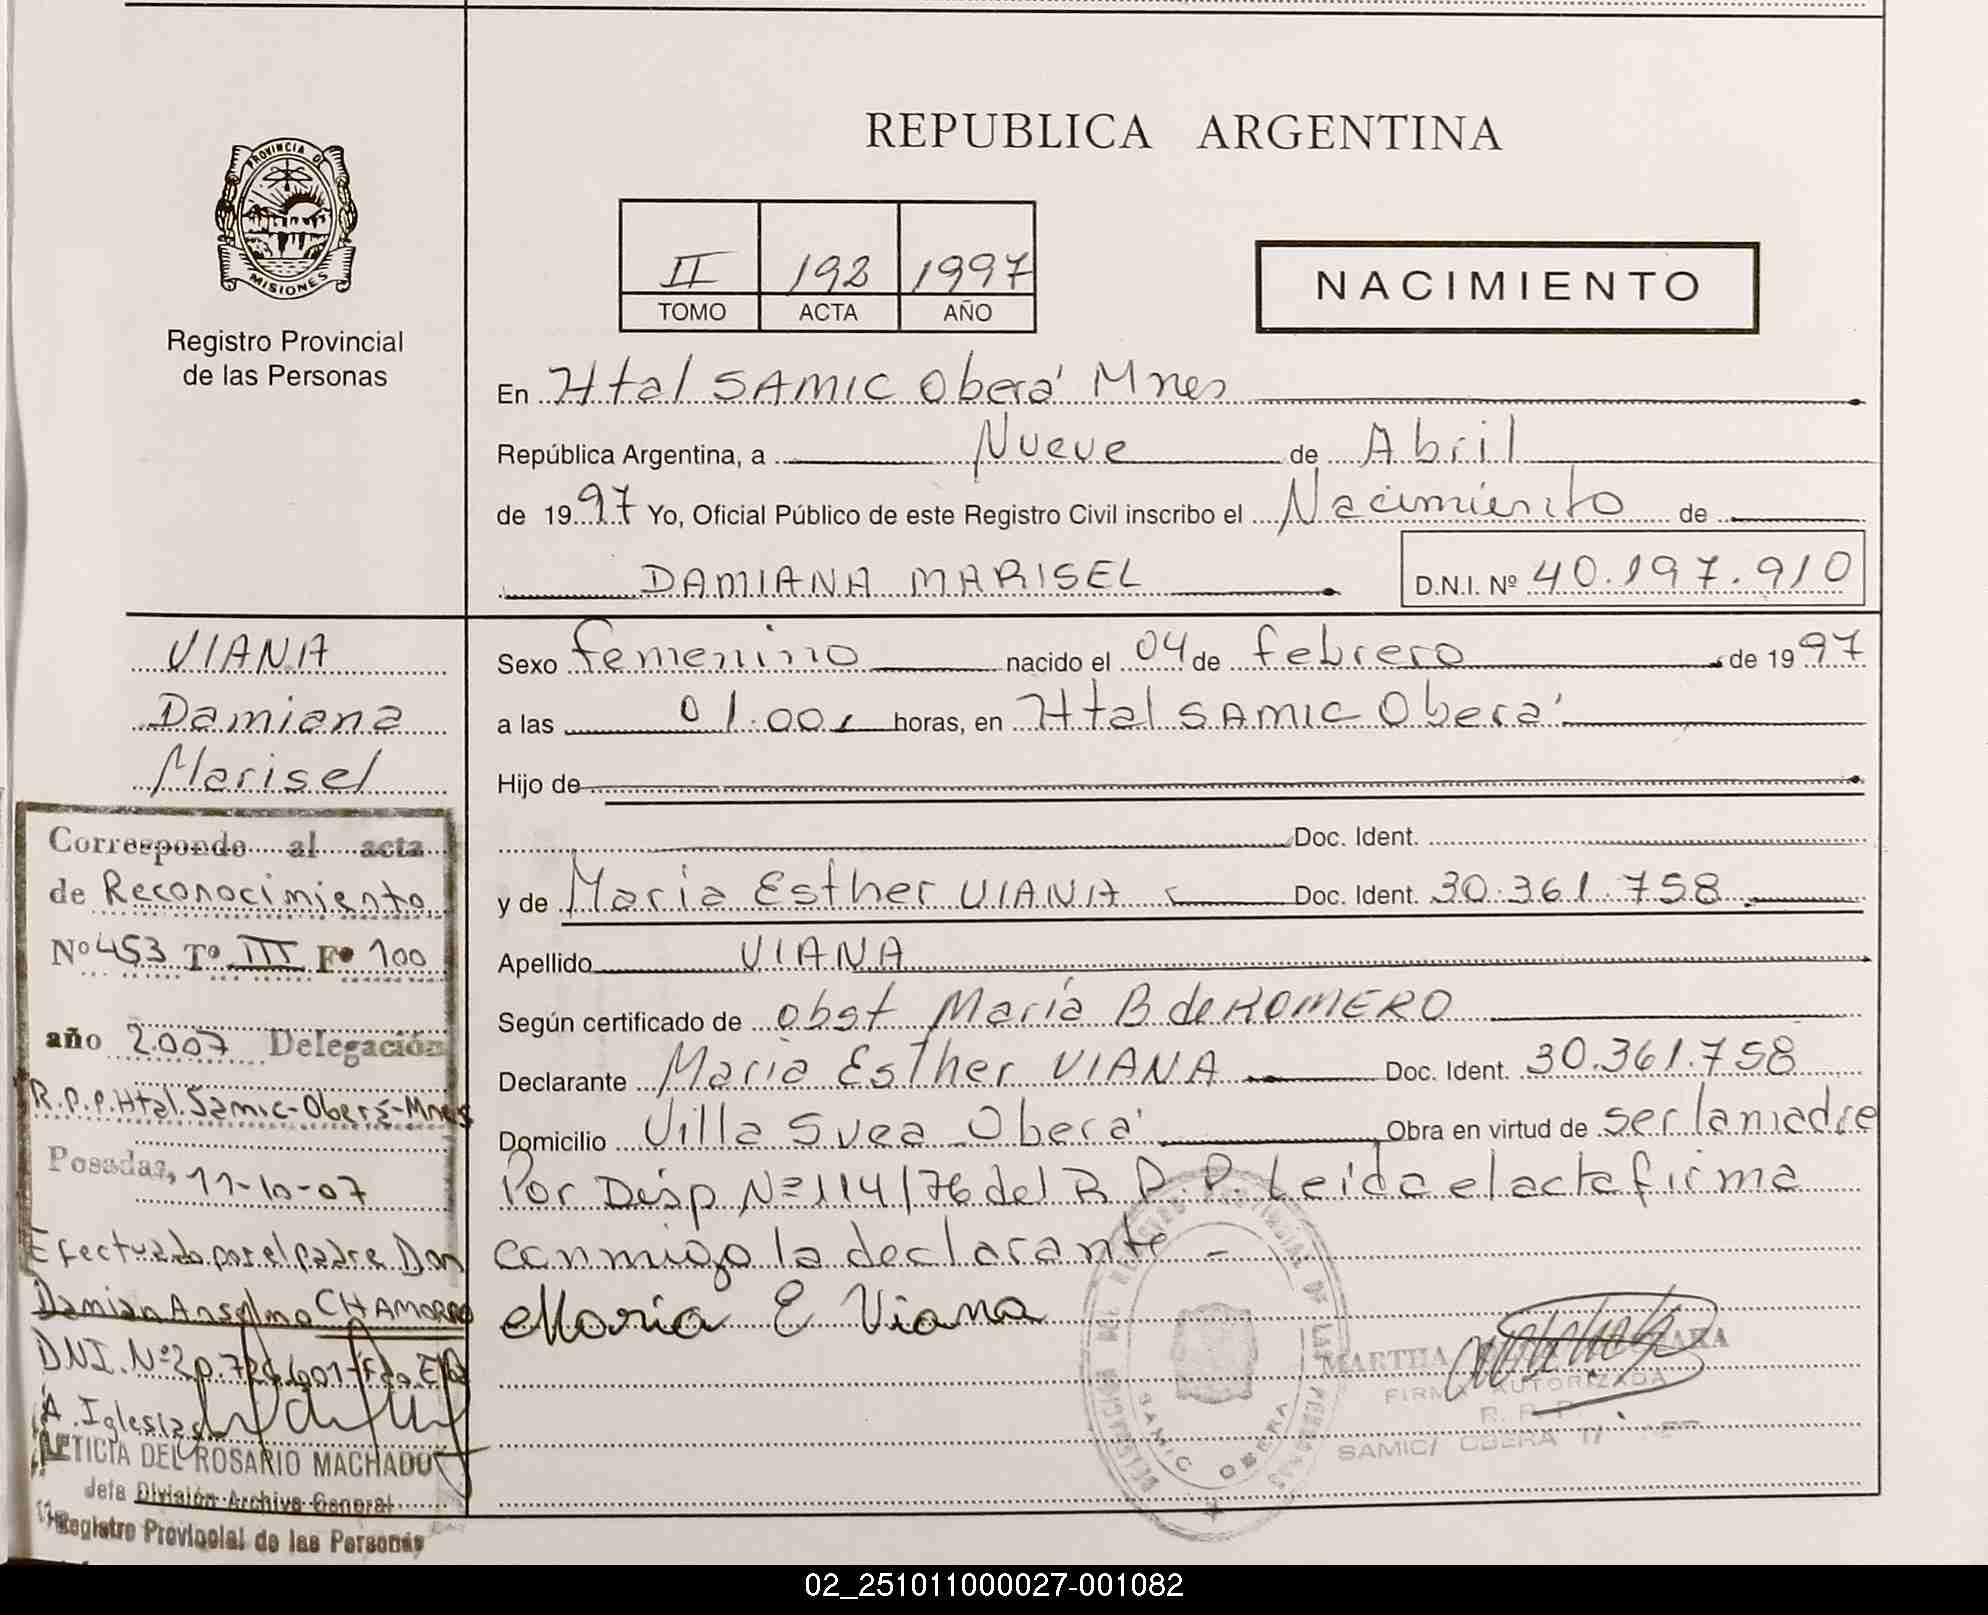 REPUBLICA ARGENTINA
PROVINCIA DE
MISIONES
Registro Provincial
de las Personas
II 192 1997
TOMO ACTA AÑO
NACIMIENTO
En Htal SAMIC Oberá Mnes
República Argentina, a Nueve de Abril
de 1997 Yo, Oficial Público de este Registro Civil inscribo el Nacimiento de
DAMIANA MARISEL D.N.I. Nº 40.197.910
VIANA
Damiana
Marisel
Sexo femenino nacido el 04 de febrero de 1997
a las 01.00 horas, en Htal SAMIC Oberá
Hijo de
Doc. Ident.
y de Maria Esther VIANA Doc. Ident. 30.361.758
Apellido VIANA
Según certificado de obst María B de ROMERO
Declarante Maria Esther VIANA Doc. Ident. 30.361.758
Domicilio Villa Svea Oberá Obra en virtud de ser la madre
Por Disp Nº 114/76 del R.P.P. Leida el acta firma
conmigo la declarante -
Maria E Viana
Corresponde al acta
de Reconocimiento
Nº 453 Tº III Fº 100
año 2007 Delegación
R.P.P. Htal. Samic-Oberá-Mnes
Posadas, 11-10-07
Efectuado por el padre Don
Damian Anselmo CHAMORRO
DNI. Nº 20.726.601 Fdo.
A. Iglesias
LETICIA DEL ROSARIO MACHADO
Jefa División Archivo General
Registro Provincial de las Personas
SAMIC OBERA
MARTHA
FIRMA AUTORIZADA
R. P. P.
SAMIC/ OBERA
02_251011000027-001082